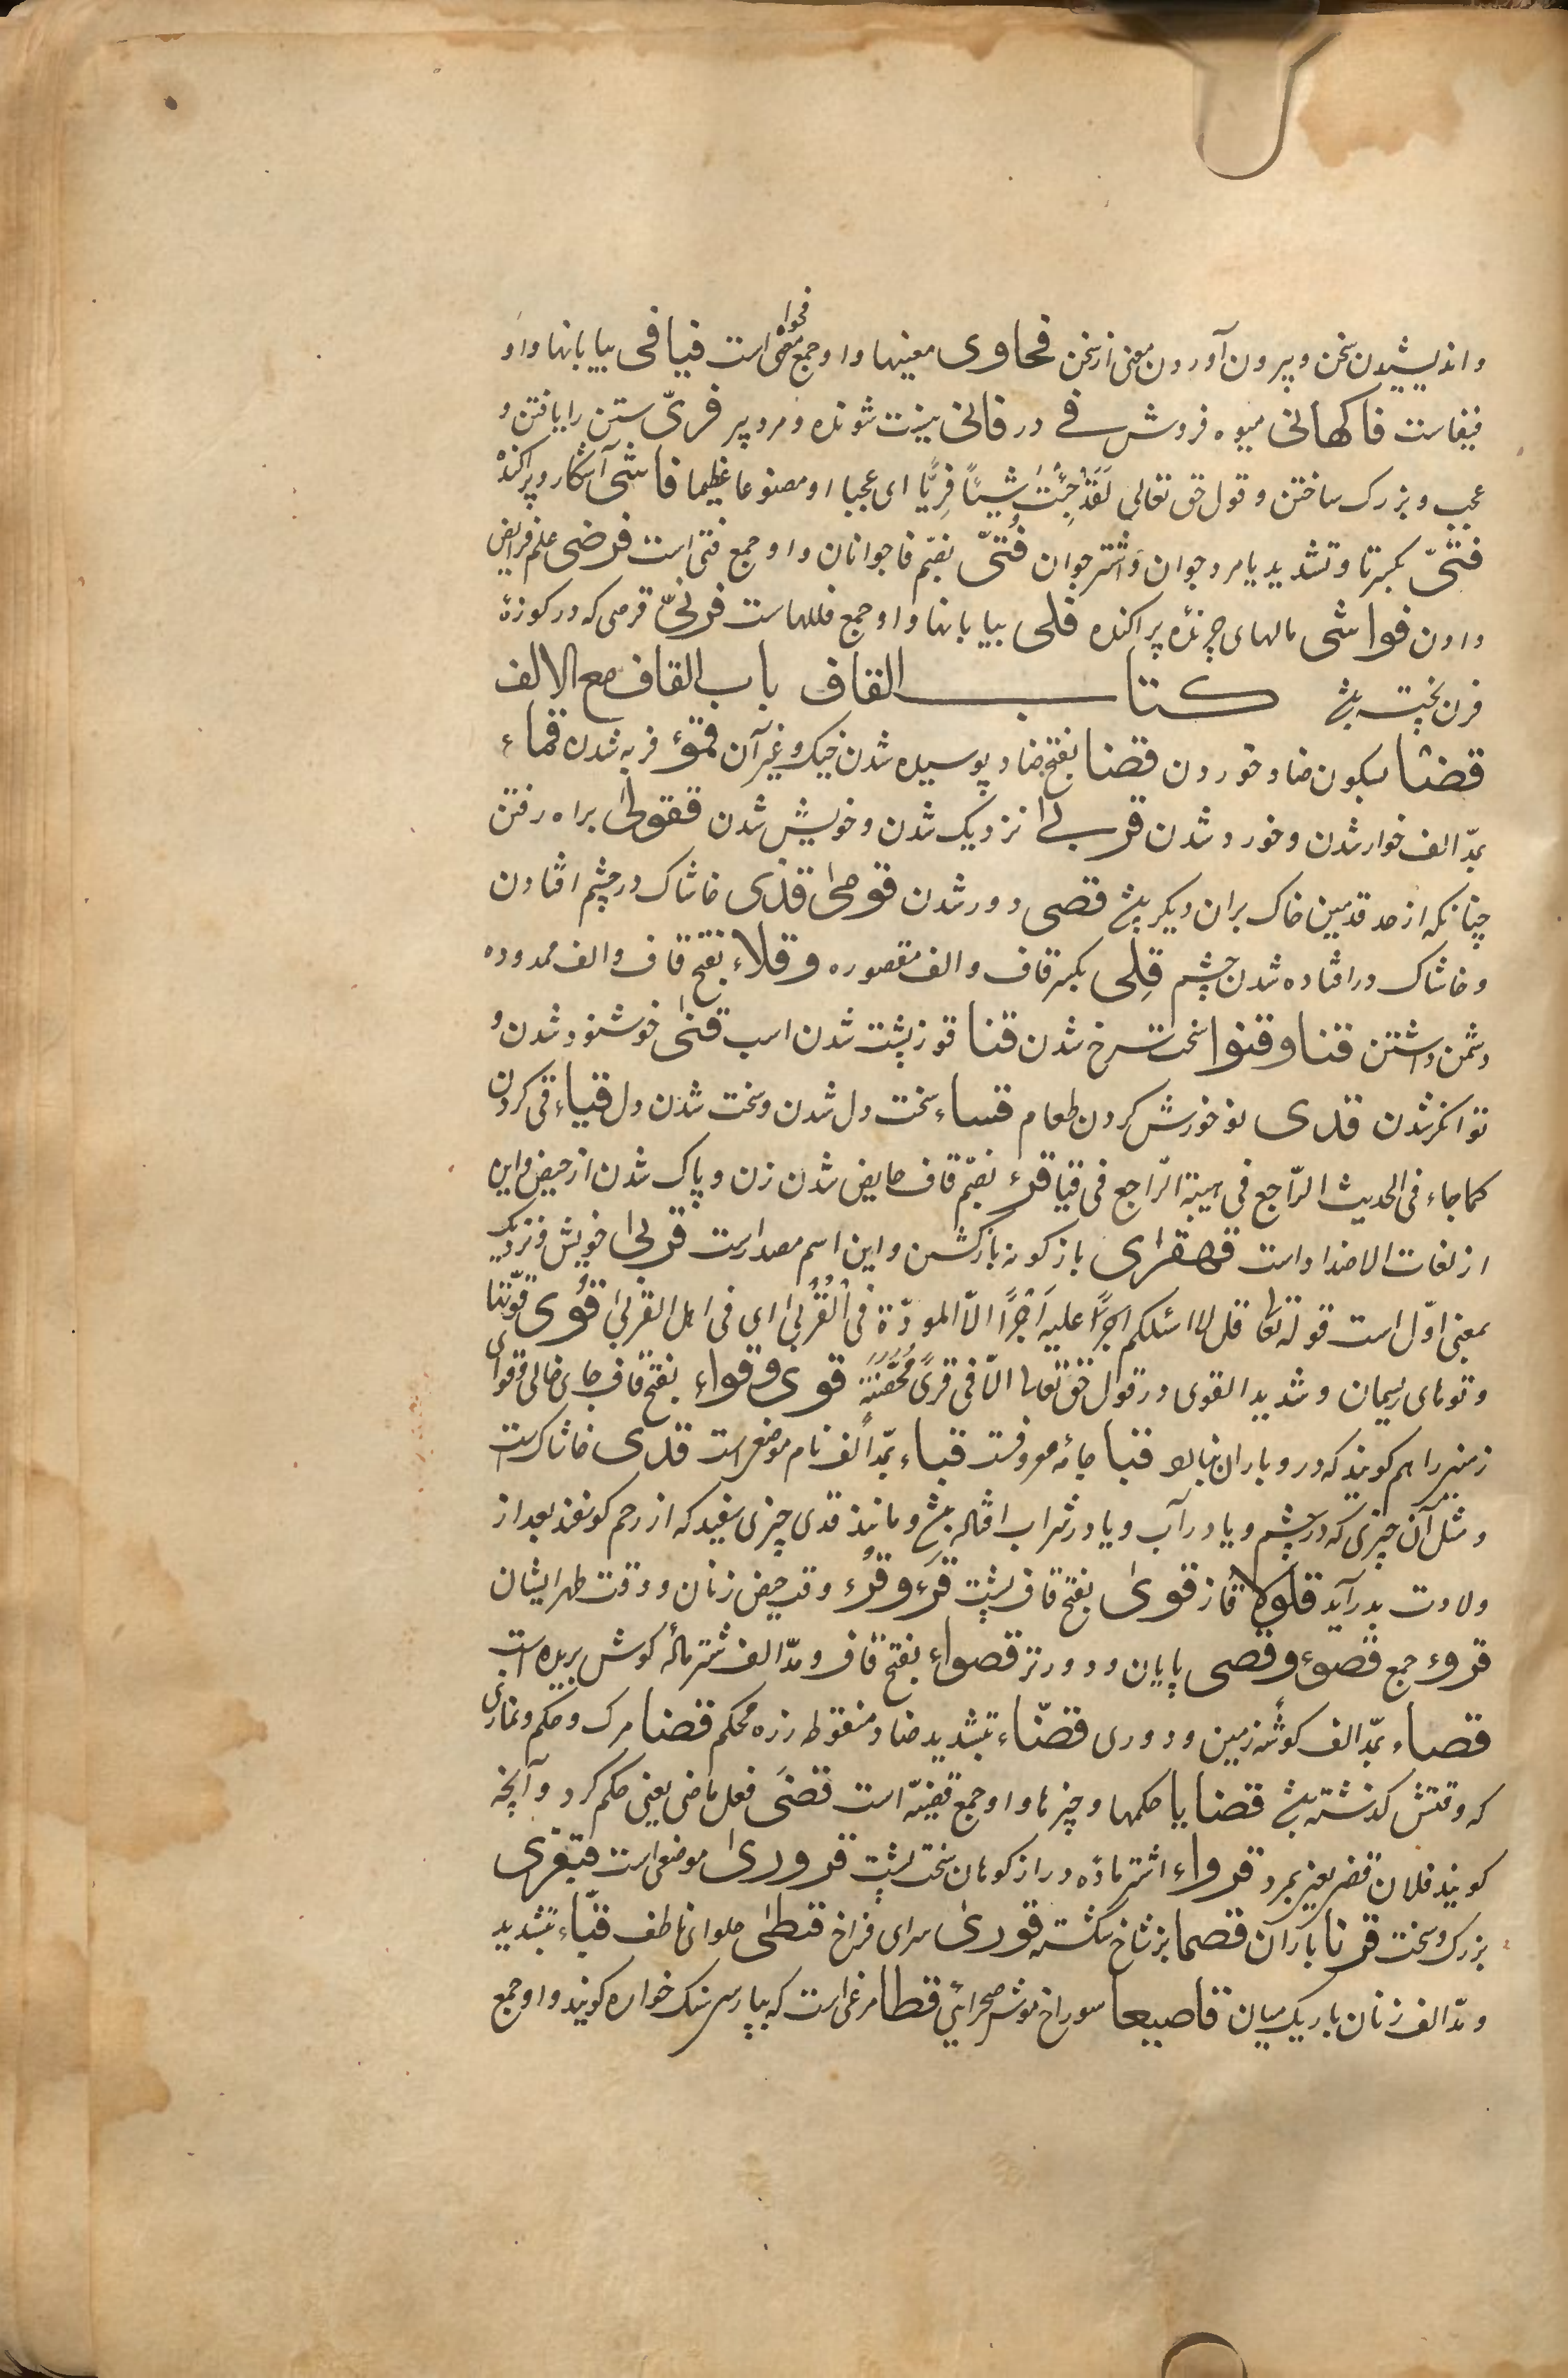 و اندیشیدن سخن و بیرون آوردن معنی از سخن فحاوی معنیها و او جمع فحوا است فیافی بیابانها و او
فیفاست فاکهانی میوه فروش فے در فانی نیزت شونده و مرد پیر فریّ ستن را یافتن و
عجب و بزرک ساختن و قول حق تعالی لَقَدْ جِئْتِ شَیْئًا فَرِیًّا ای عجبا او مصنوعا عظیما فاشی آشکار و پراکنده
فتیّ بکسر تا و تشدید یا مرد جوان و اشتر جوان فُتیّ بضمّ فا جوانان و او جمع فتی است فرضی علم فرایض
دادن فواشی مالهای چرنده پراکنده فلی بیابانها و او جمع فللهاست فرنیّ قرصی که در کوزهٔ
فرن پخته بشد کتاب القاف باب القاف مع الالف
قضئا بسکون ضاد خوردن قضئا بفتح ضاد پوسیده شدن خیک و غیر آن قمؤ فربه شدن قماء
بمدّ الف خوار شدن و خورد شدن قربیٰ نزدیک شدن و خویش شدن قفولیٰ براه رفتن
چنانکه از حد قدمین خاک بران دیکر بشد قصی دور شدن قوحیٰ قذی خاشاک در چشم افتادن
و خاشاک در افتاده شدن چشم قِلی بکسر قاف و الف مقصوره و قلاء بفتح قاف و الف ممدوده
دشمن داشتن قنا و قنوا سخت سرخ شدن قنا قوز پشت شدن اسب قنی خوشنود شدن و
توانکر شدن قدی نو خورش کردن طعام قساء سخت دل شدن و سخت شدن دل قیاء قی کردن
کما جاء فی الحدیث الرّاجع فی هبته الرّاجع فی قیا قرء بضمّ قاف حایض شدن زن و پاک شدن از حیض و این
از لغات الاضداد است قهقرٰی بازکونه بازکشتن و این اسم مصدر است قربیٰ خویش و نزدیک
بمعنی اوّل است قوله تعا قل لا اسئلکم اجرًا علیه اَجْرًا الّا المودّة فی الْقُرْبیٰ ای فی اهل القربیٰ قُوی قوّتها
و توهای ریمان و شدید القوی و در قول حق تعالی الّا فی قریً مُحَصَّنَةٍ قوی و قواء بفتح قاف جای خالی و قوای
زمینی را هم کویند که در و باران نبارد قبا جامه معروفست قباء بمدّ الف نام موضعی است قذی خاشاکست
و مثل آن چیزی که در چشم و یا در آب و یا در شراب افتاده بشد و مانند قذی چیزی سفید که از رحم کوسفند بعد از
ولادت بدر آید قلولا قاز قویٰ بفتح قاف پشت قَرْء و قُرْء وقت حیض زنان و وقت طهر ایشان
قروء جمع قصوء و قصی پایان و دورتر قصواء بفتح قاف و مدّ الف شتر مادهٔ کوش بریده است
قصاء بمدّ الف کوشهٔ زمین و دوری قضّاء بتشدید ضاد منقوطه زره محکم قضا مرک و حکم و نمازی
که وقتش کذشته بشد قضایا حکمها و چیزها و او جمع قضیّه است قضیَ فعل ماضی یعنی حکم کرد و آنچه
کویند فلان قضی یعنی بمرد قرواء اشتر ماده دراز کوهان سخت پشت قروریٰ موضعی است قبعزی
بزرک و سخت قرنا باران قصما بز شاخ شکسته قوریٰ سرای فراخ قبطیٰ حلوای ناطف قبّاء بتشدید
و مدّ الف زنان باریک میان قاصیعا سوراخ موش صحرائی قطا مرغی است که بپارسی سنک خواره کویند و او جمع